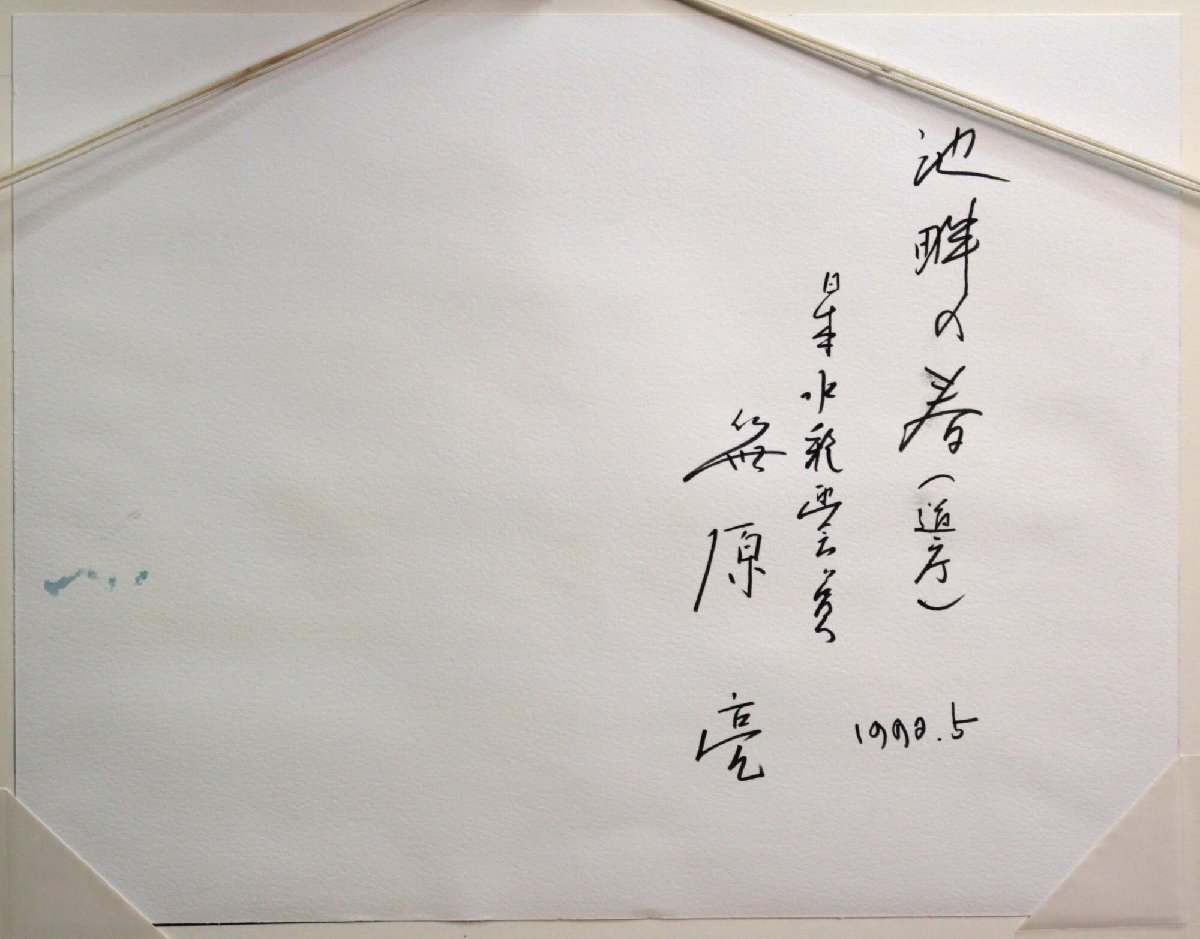 池畔の春(道庁)
日本水彩画会員
笹原 亮
1992.5